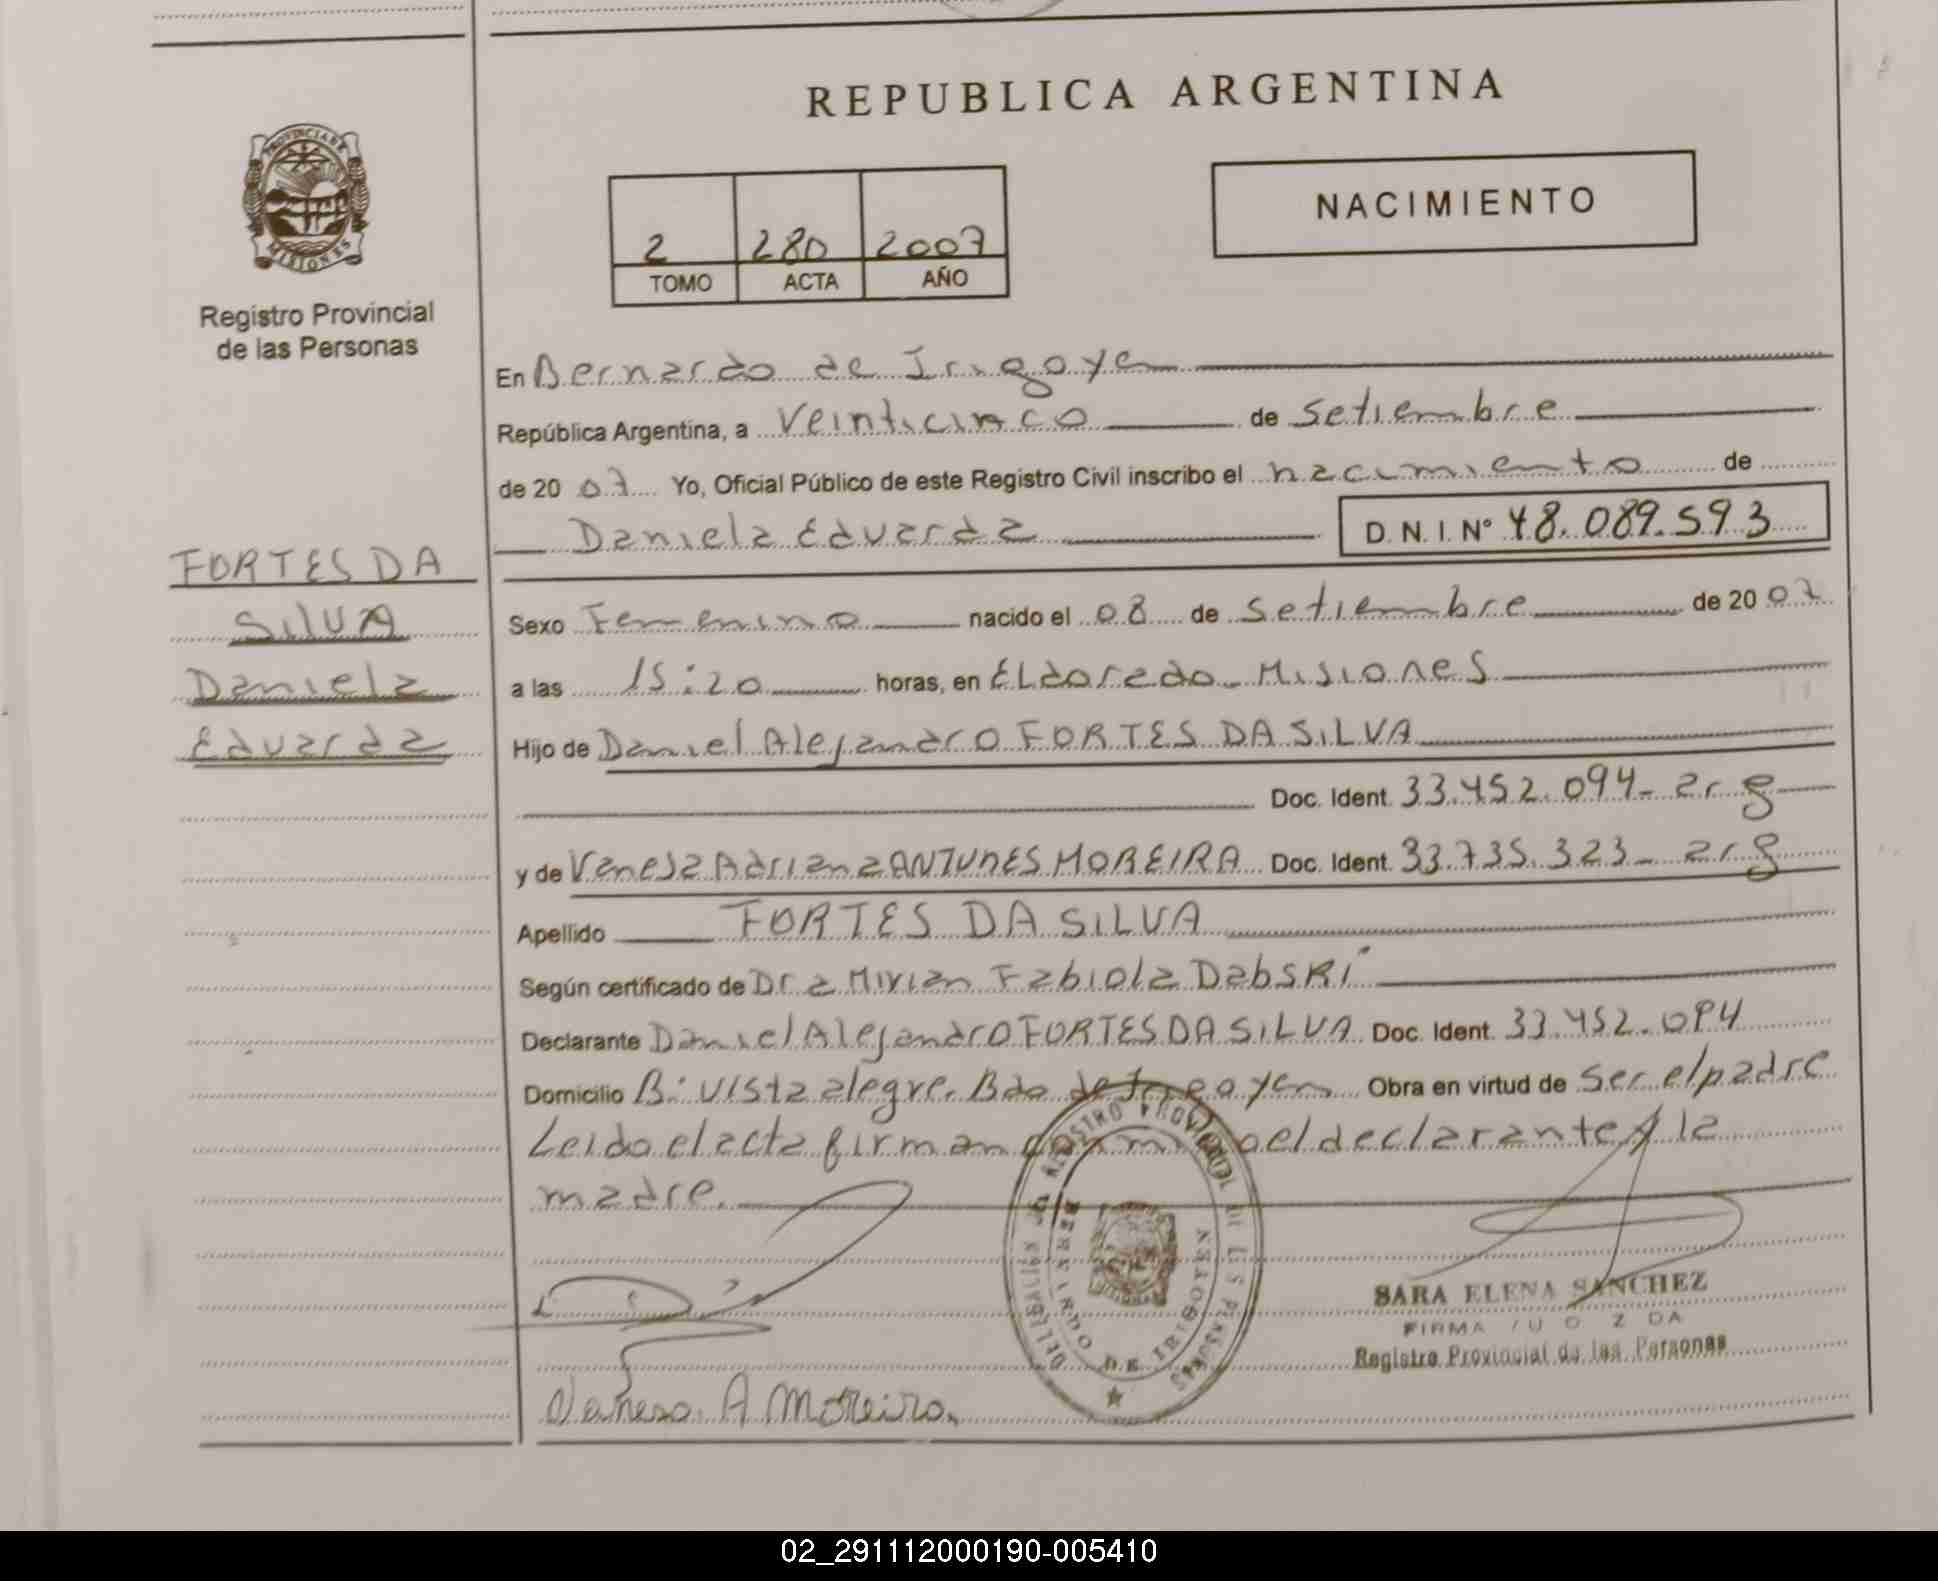 REPUBLICA ARGENTINA
PROVINCIA DE
MISIONES
Registro Provincial
de las Personas
NACIMIENTO
2 280 2007
TOMO ACTA AÑO
En Bernardo de Irigoyen
República Argentina, a Veinticinco de Setiembre
de 2007 Yo, Oficial Público de este Registro Civil inscribo el nacimiento de
Daniela Eduarda D. N. I. Nº 48.089.593
FORTES DA
SILVA
Daniela
Eduarda
Sexo Femenino nacido el 08 de Setiembre de 2007
a las 15:20 horas, en ELdorado - Misiones
Hijo de Daniel Alejandro FORTES DA SILVA
Doc. Ident. 33.452.094- arg
y de Vanesa Adriana ANTUNES MOREIRA Doc. Ident. 33.735.323- arg
Apellido FORTES DA SILVA
Según certificado de Dra Mirian Fabiola Dabski
Declarante Daniel Alejandro FORTES DA SILVA Doc. Ident. 33.452.094
Domicilio B: Vista alegre. Bdo de Irigoyen Obra en virtud de Ser el padre
Leido el acta firman conmigo el declarante y la
madre.
REGISTRO PROVINCIAL DE LAS PERSONAS
DELEGACION
BERNARDO DE IRIGOYEN
SARA ELENA SANCHEZ
FIRMA
Registro Provincial de las Personas
Vanesa A Moreira.
02_291112000190-005410